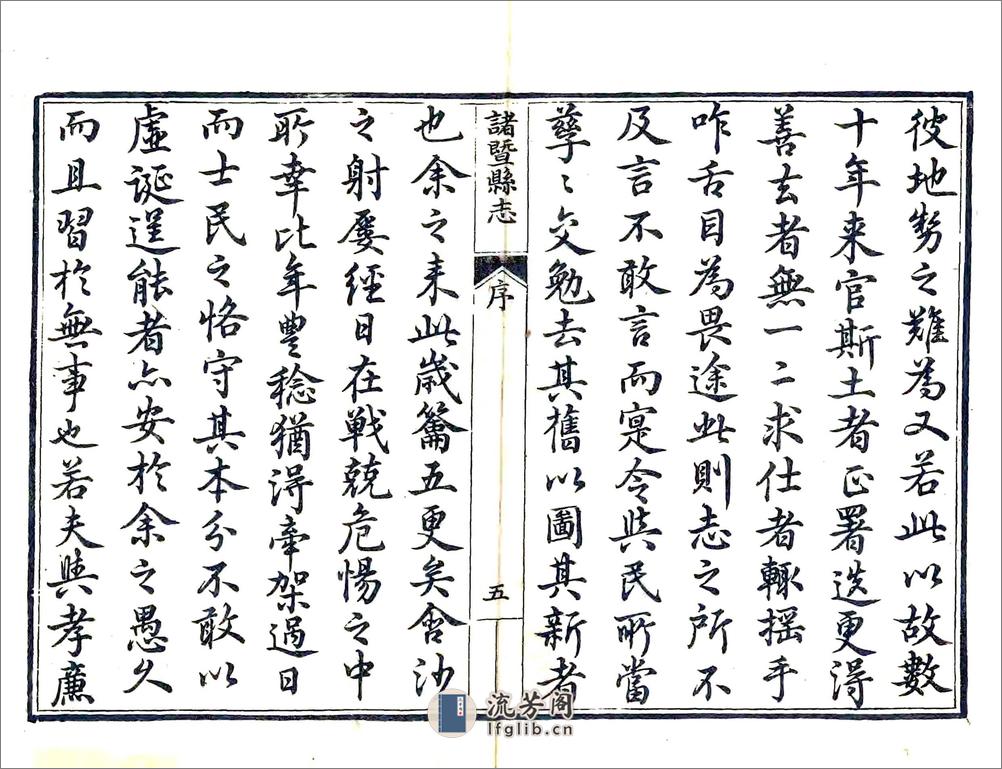 彼地勢之難為又若此以故數
十年来官斯土者正署迭更得
善去者無一二求仕者輙摇手
咋舌目為畏途此則志之所不
及言不敢言而寔令與民所當
孳〻交勉去其舊以圖其新者
諸暨縣志
序
五
也余之来此歳籥五更矣含沙
之射屢經日在戰兢危惕之中
所幸比年豐稔猶得牽架過日
而士民之恪守其本分不敢以
虛誕逞能者亦安於余之愚久
而且習於無事也若夫與孝廉
流芳阁
lfglib.cn